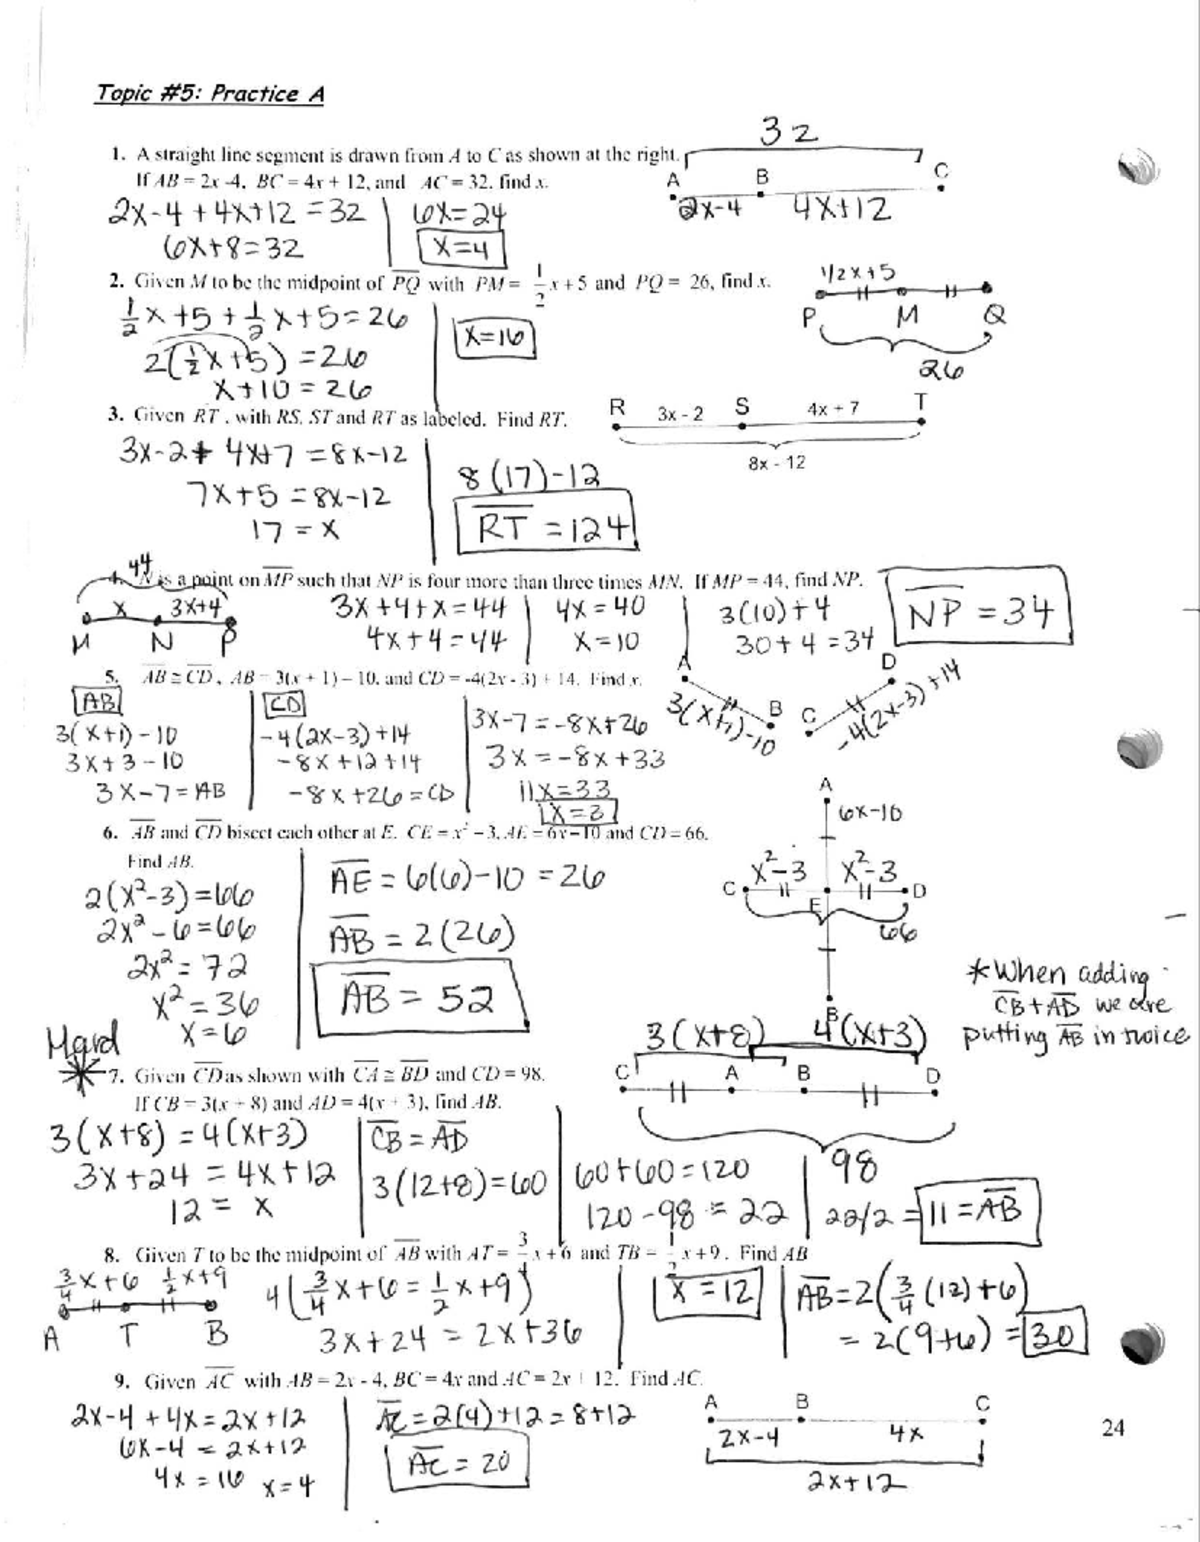 Topic #5: Practice A
32
1. A straight line segment is drawn from A to C as shown at the right.
If AB = 2x -4, BC = 4x + 12, and AC = 32, find x.
A B C
2x-4 4x+12
2x-4+4x+12=32 6x=24
6x+8=32 x=4
2. Given M to be the midpoint of PQ with PM = 1/2 x + 5 and PQ = 26, find x.
1/2x+5
P M Q
26
1/2x+5+1/2x+5=26
2(1/2x+5)=26 x=16
x+10=26
3. Given RT, with RS, ST and RT as labeled. Find RT.
R 3x - 2 S 4x + 7 T
8x - 12
3x-2+4x+7=8x-12
7x+5=8x-12 8(17)-12
17=x RT=124
44
N is a point on MP such that NP is four more than three times MN. If MP = 44, find NP.
x 3x+4
M N P
3x+4+x=44 4x=40 3(10)+4 NP=34
4x+4=44 x=10 30+4=34
5. AB ≅ CD, AB = 3(x + 1) – 10, and CD = -4(2x - 3) + 14. Find x.
A B C D
3(x+1)-10 -4(2x-3)+14
AB CD
3(x+1)-10 -4(2x-3)+14 3x-7=-8x+26
3x+3-10 -8x+12+14 3x=-8x+33
3x-7=AB -8x+26=CD 11x=33
x=3
6. AB and CD bisect each other at E. CE = x² – 3, AE = 6x – 10 and CD = 66.
Find AB.
A
6x-10
x²-3 x²-3
C E D
66
B
2(x²-3)=66 AE=6(6)-10=26
2x²-6=66 AB=2(26)
2x²=72 AB=52
x²=36
x=6
*When adding
CB+AD we are
putting AB in twice
Hard
7. Given CD as shown with CA ≅ BD and CD = 98.
If CB = 3(x + 8) and AD = 4(x + 3), find AB.
3(x+8) 4(x+3)
C A B D
98
3(x+8)=4(x+3) CB=AD
3x+24=4x+12 3(12+8)=60 60+60=120
12=x 120-98=22 22/2=11=AB
8. Given T to be the midpoint of AB with AT = 3/4 x + 6 and TB = 1/2 x + 9. Find AB
3/4x+6 1/2x+9
A T B
4(3/4x+6=1/2x+9) x=12 AB=2(3/4(12)+6)
3x+24=2x+36 =2(9+6)=30
9. Given AC with AB = 2x - 4, BC = 4x and AC = 2x + 12. Find AC.
A B C
2x-4 4x
2x+12
2x-4+4x=2x+12 AC=2(4)+12=8+12
6x-4=2x+12 AC=20
4x=16 x=4
24